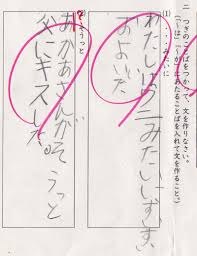 二 つぎのことばをつかって、文を作りなさい。
(「〜は」「〜が」にあたることばを入れて文を作ること。)
(1) ・・・・みたいに
わたしはワニみたいにすいすい
およいだ
(2) そうっと
おかあさんがそうっと
父にキスした。